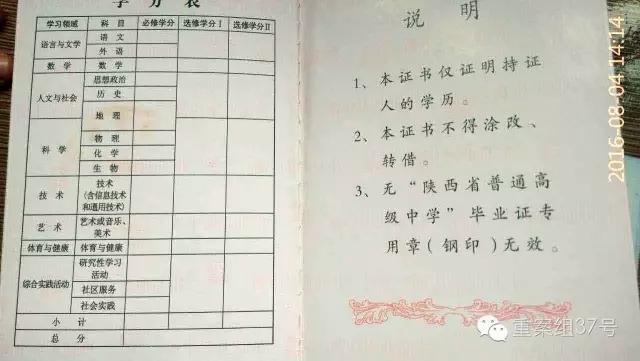 学分表
学习领域 科目 必修学分 选修学分Ⅰ 选修学分Ⅱ
语言与文学 语文
外语
数学 数学
人文与社会 思想政治
历史
地理
科学 物理
化学
生物
技术 技术
(含信息技术
和通用技术)
艺术 艺术或音乐、
美术
体育与健康 体育与健康
综合实践活动 研究性学习
活动
社区服务
社会实践
小计
总分
说明
1、本证书仅证明持证
人的学历。
2、本证书不得涂改、
转借。
3、无“陕西省普通高
级中学”毕业证专
用章(钢印)无效。
2016-08-04 14:14
重案组37号